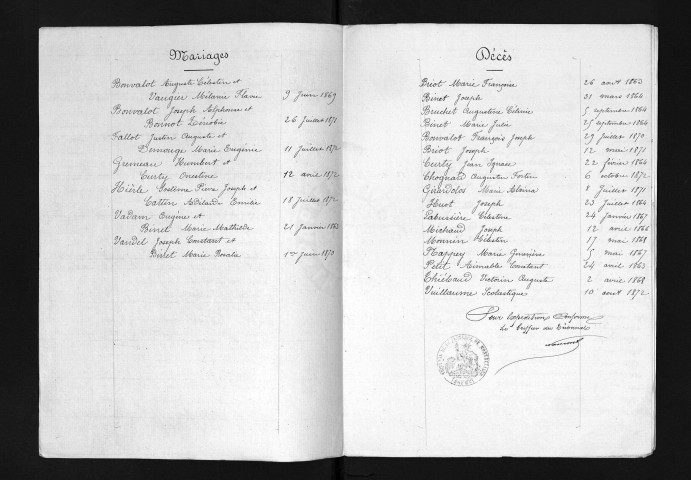 Mariages
Bonvalot Auguste Célestin et
Vaugier Mélanie Flavie 9 Juin 1869
Bonvalot Joseph Alphonse et
Bonnot Zénobie 26 Juillet 1871
Fallot Justin Auguste et
Demouge Marie Eugénie 11 Juillet 1872
Greineau Humbert et
Curty Ernestine 12 avril 1872
Hierle Pierre Joseph et
Cattin Adélaïde Emélie 18 Juillet 1872
Vadam Eugène et
Binet Marie Mathilde 21 Janvier 1863
Vandel Joseph Constant et
Binet Marie Rosalie 1er Juin 1870
Décès
Briot Marie Françoise 26 août 1863
Binet Joseph 31 mars 1864
Bruchet Augustine Célinie 5 septembre 1864
Binet Marie Julie 25 septembre 1864
Bonvalot François Joseph 29 Juillet 1870
Briot Joseph 12 mai 1871
Curty Jean Ignace 22 février 1864
Chognard Augustin Fortin 6 octobre 1872
Girardclos Marie Alvina 8 Juillet 1871
Huot Joseph 23 Juillet 1864
Labussière Célestine 24 Janvier 1867
Michaud Joseph 12 avril 1866
Monnin Célestin 17 mai 1868
Nappey Marie 5 mai 1867
Petit Aimable Constant 24 avril 1863
Thiébaud Victorin Auguste 2 avril 1868
Vuillaume Scholastique 10 août 1872
Pour expédition Conforme
du Greffier du Tribunal